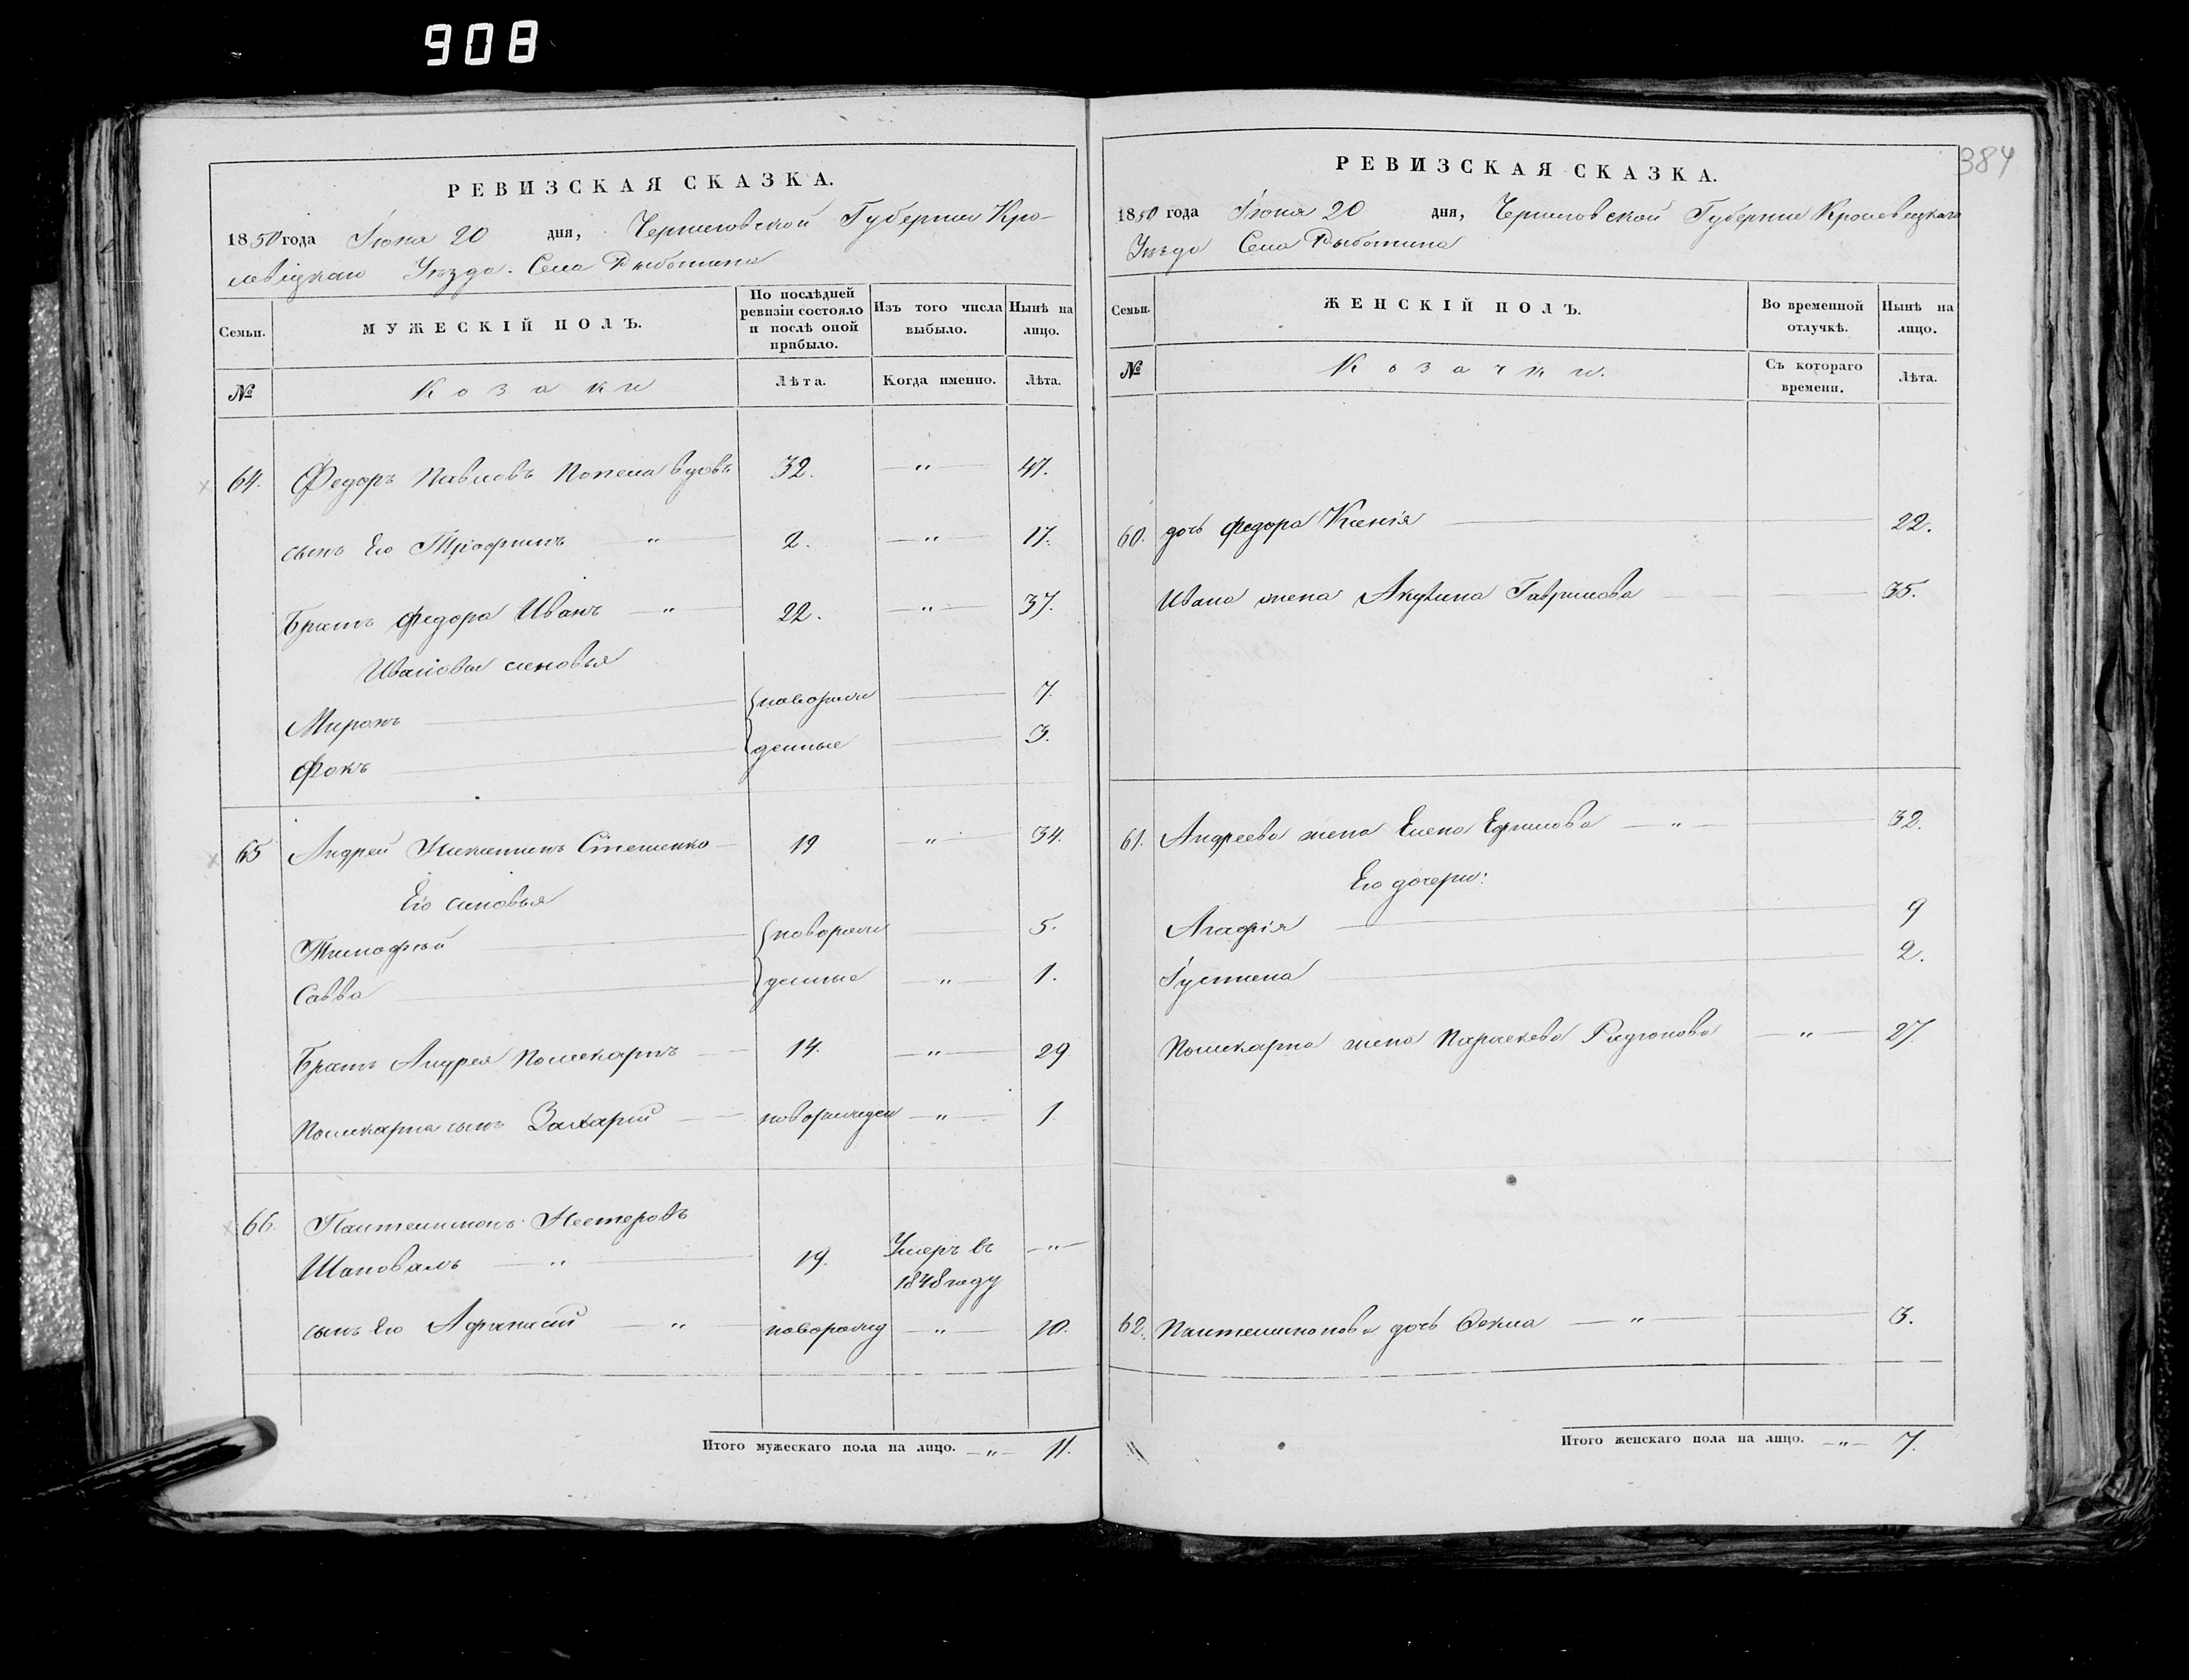 908
РЕВИЗСКАЯ СКАЗКА.
1850 года Іюня 20 дня, Черниговской Губерніи Кро-
левецкаго Уѣзда. Села Рыботина
Семьи. МУЖЕСКІЙ ПОЛЪ. По послѣдней ревизіи состояло и послѣ оной прибыло. Изъ того числа выбыло. Нынѣ на лицо.
№ Козаки Лѣта. Когда именно. Лѣта.
64. Федоръ Павловъ вдовъ 32. — „ — 47.
сынъ Его Трiофимъ — „ — 2. — „ — 17.
Братъ Федора Иванъ — „ 22. — „ — 37.
Ивановы синовья
Миронъ новорож 7.
Фокъ денные 3.
65 Андрей Никитинъ Стешенко 19 — „ — 34.
Его синовья
Тимофѣй новорож 5.
Савва денные — „ — 1.
Братъ Андрея Поликарпъ 14. — „ — 29
Поликарпа сынъ Захарій новорожден — „ — 1
66. Пантелимонъ Нестеровъ
Шаповалъ — „ 19. Умеръ въ — „ —
1848 году
сынъ Его Афанасій — „ — новорожд — „ — 10.
Итого мужескаго пола на лицо. — „ — 11.
384
РЕВИЗСКАЯ СКАЗКА.
1850 года Іюня 20 дня, Черниговской Губерніи Кролевецкаго
Уѣзда Села Рыботина
Семьи. ЖЕНСКІЙ ПОЛЪ. Во временной отлучкѣ. Нынѣ на лицо.
№ Козачки. Съ котораго времени. Лѣта.
60. дочь Федора Ксенія 22.
Ивана жена Акулина Гаврилова 35.
61. Андреева жена Елена Ефимова — „ — 32.
Его дочери:
Агафія 9
Іустина 2.
Поликарпа жена Параскева Радіонова — „ — 27.
62. Пантелимонова дочь Фекла — „ — 3.
Итого женскаго пола на лицо. — „ — 7.